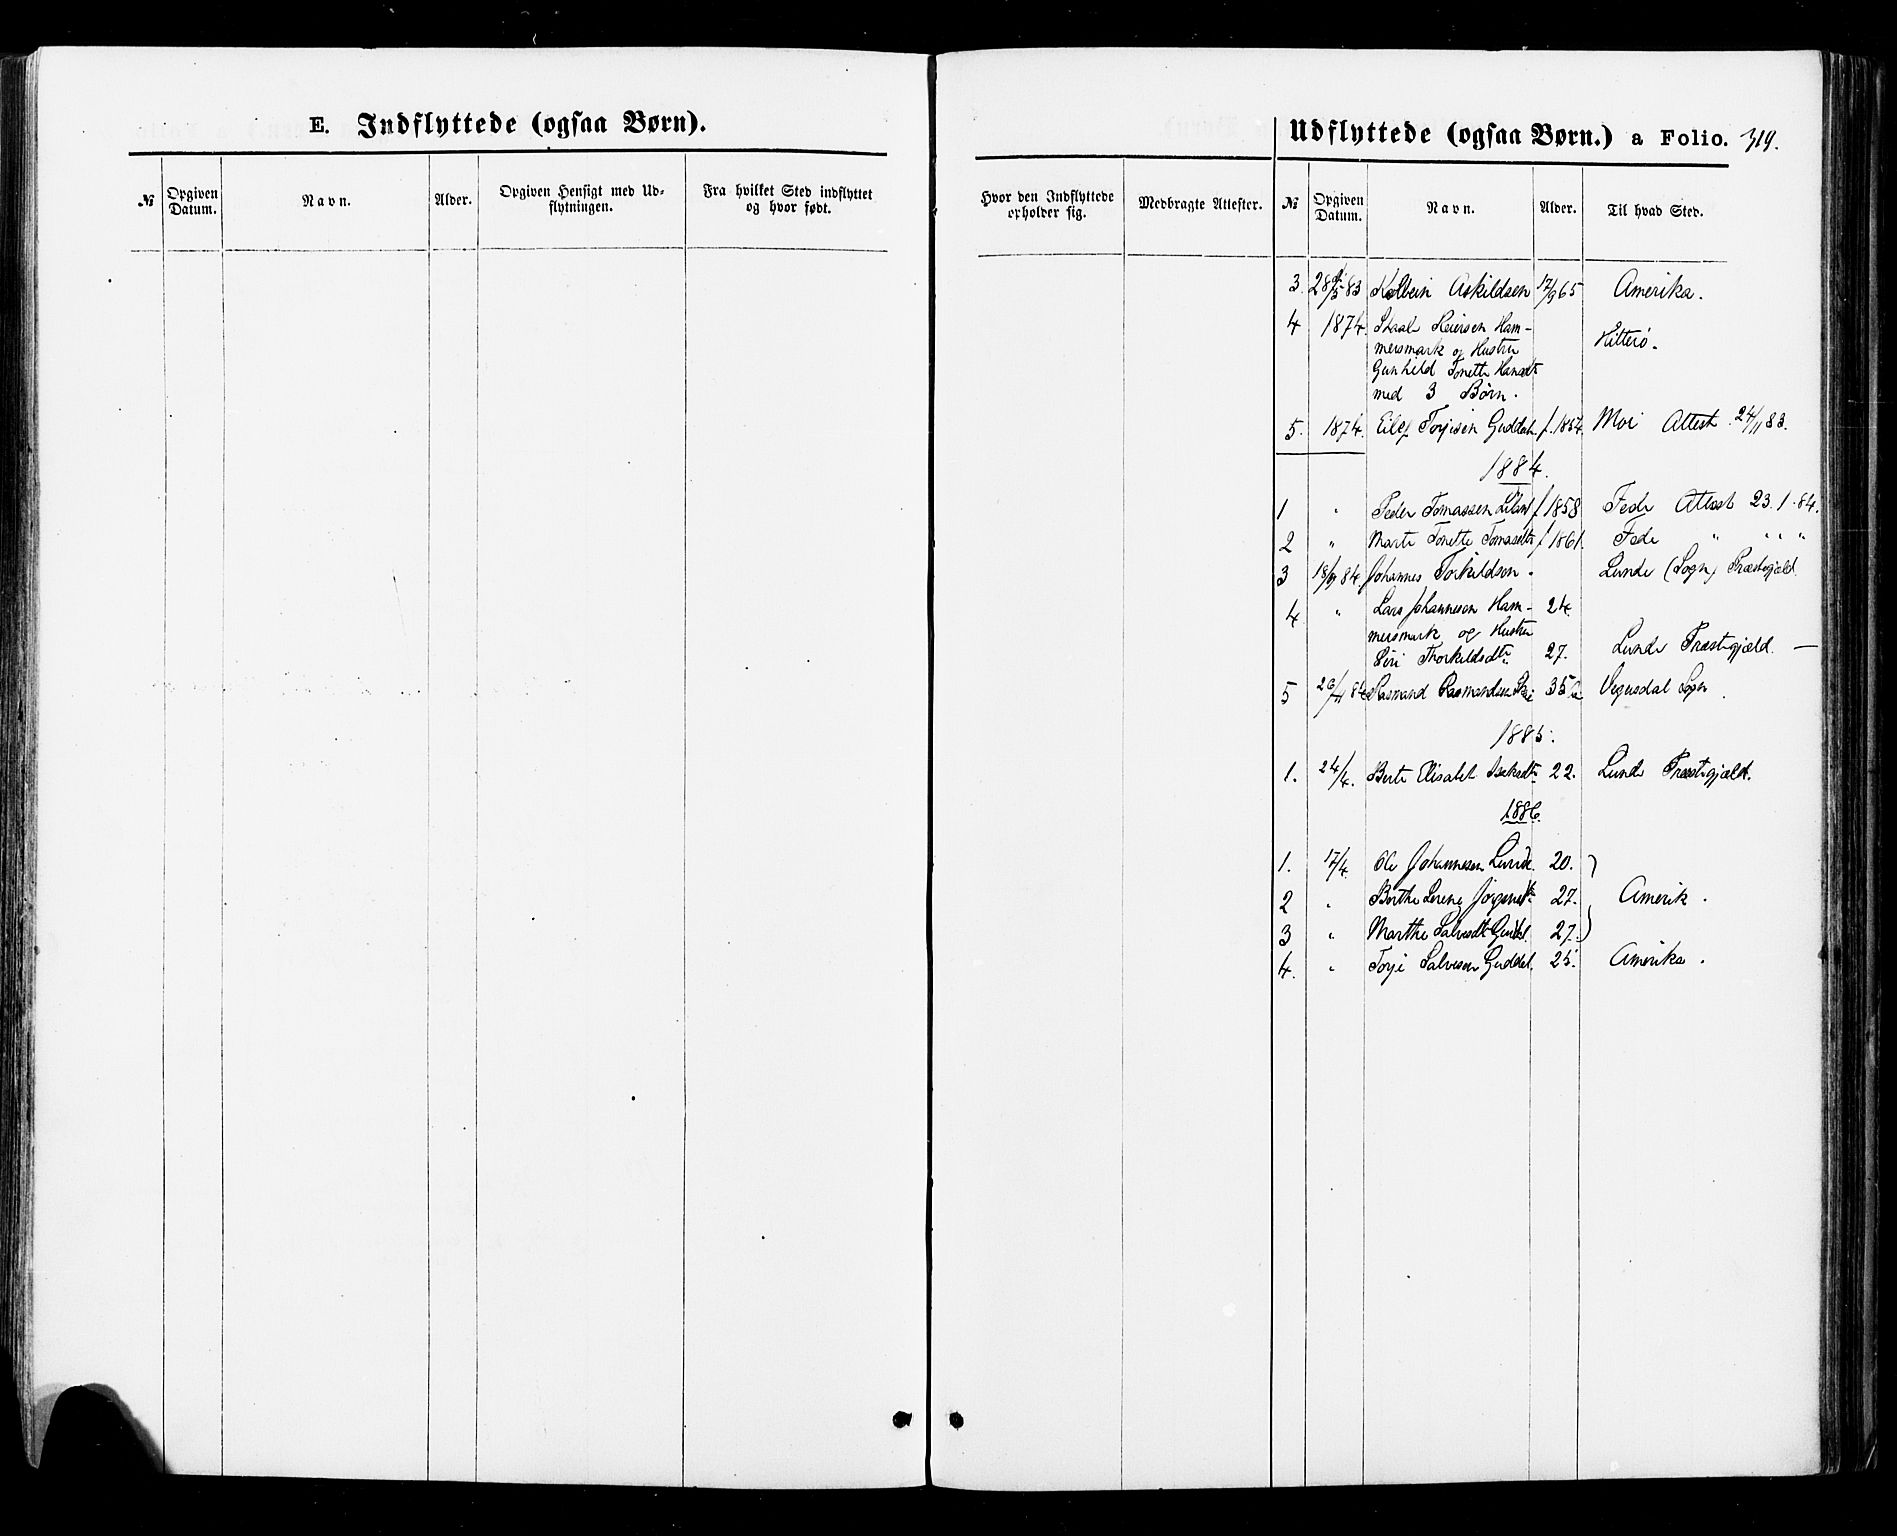 E. Indflyttede (ogsaa Børn).
№ Opgiven Datum. Navn. Alder. Opgiven Hensigt med Udflytningen. Fra hvilket Sted indflyttet og hvor født.
Udflyttede (ogsaa Børn.) a Folio. 319.
Hvor den Indflyttede opholder sig. Medbragte Attester. № Opgiven Datum. Navn. Alder. Til hvad Sted.
3. 28/3 83 Kolbein Askildsen 17/9 65 Amerika.
4 1874. Reiersen Ham-
mersmark og Hustru Hitterø.
Gunhild Tonette Hansdt
med 3 Børn.
5. 1874. Eilef Torjisen Guddal f. 1854. Moi Attest 24/11 83.
1884.
1 " Peder Tomassen f 1858 Fede Attest 23.1.84.
2 " Marte Tonette Tomasdtr f 1861. Fede " " " "
3 18/9 84. Johannes Torkildsen. Lunde (Sogn) Præstegjæld
4 " Lars Johannesen Ham- 24.
mersmark og Hustru
Siri Thorkildsdtr 27. Lunde Præstegjæld. —
5 26/11 84 Rasmandsen 35 Vegusdal Sogn
1885.
1. 24/4. Berte Elisabet 22. Lunde Præstegjæld.
1886.
1. 17/4. Ole Johannesen Lunde. 20.
2 " Berthe Serene 27. Amerik.
3 " Marthe Salvesdt Guddal. 27.
4. " Torje Salvesen Guddal. 25. Amerika.